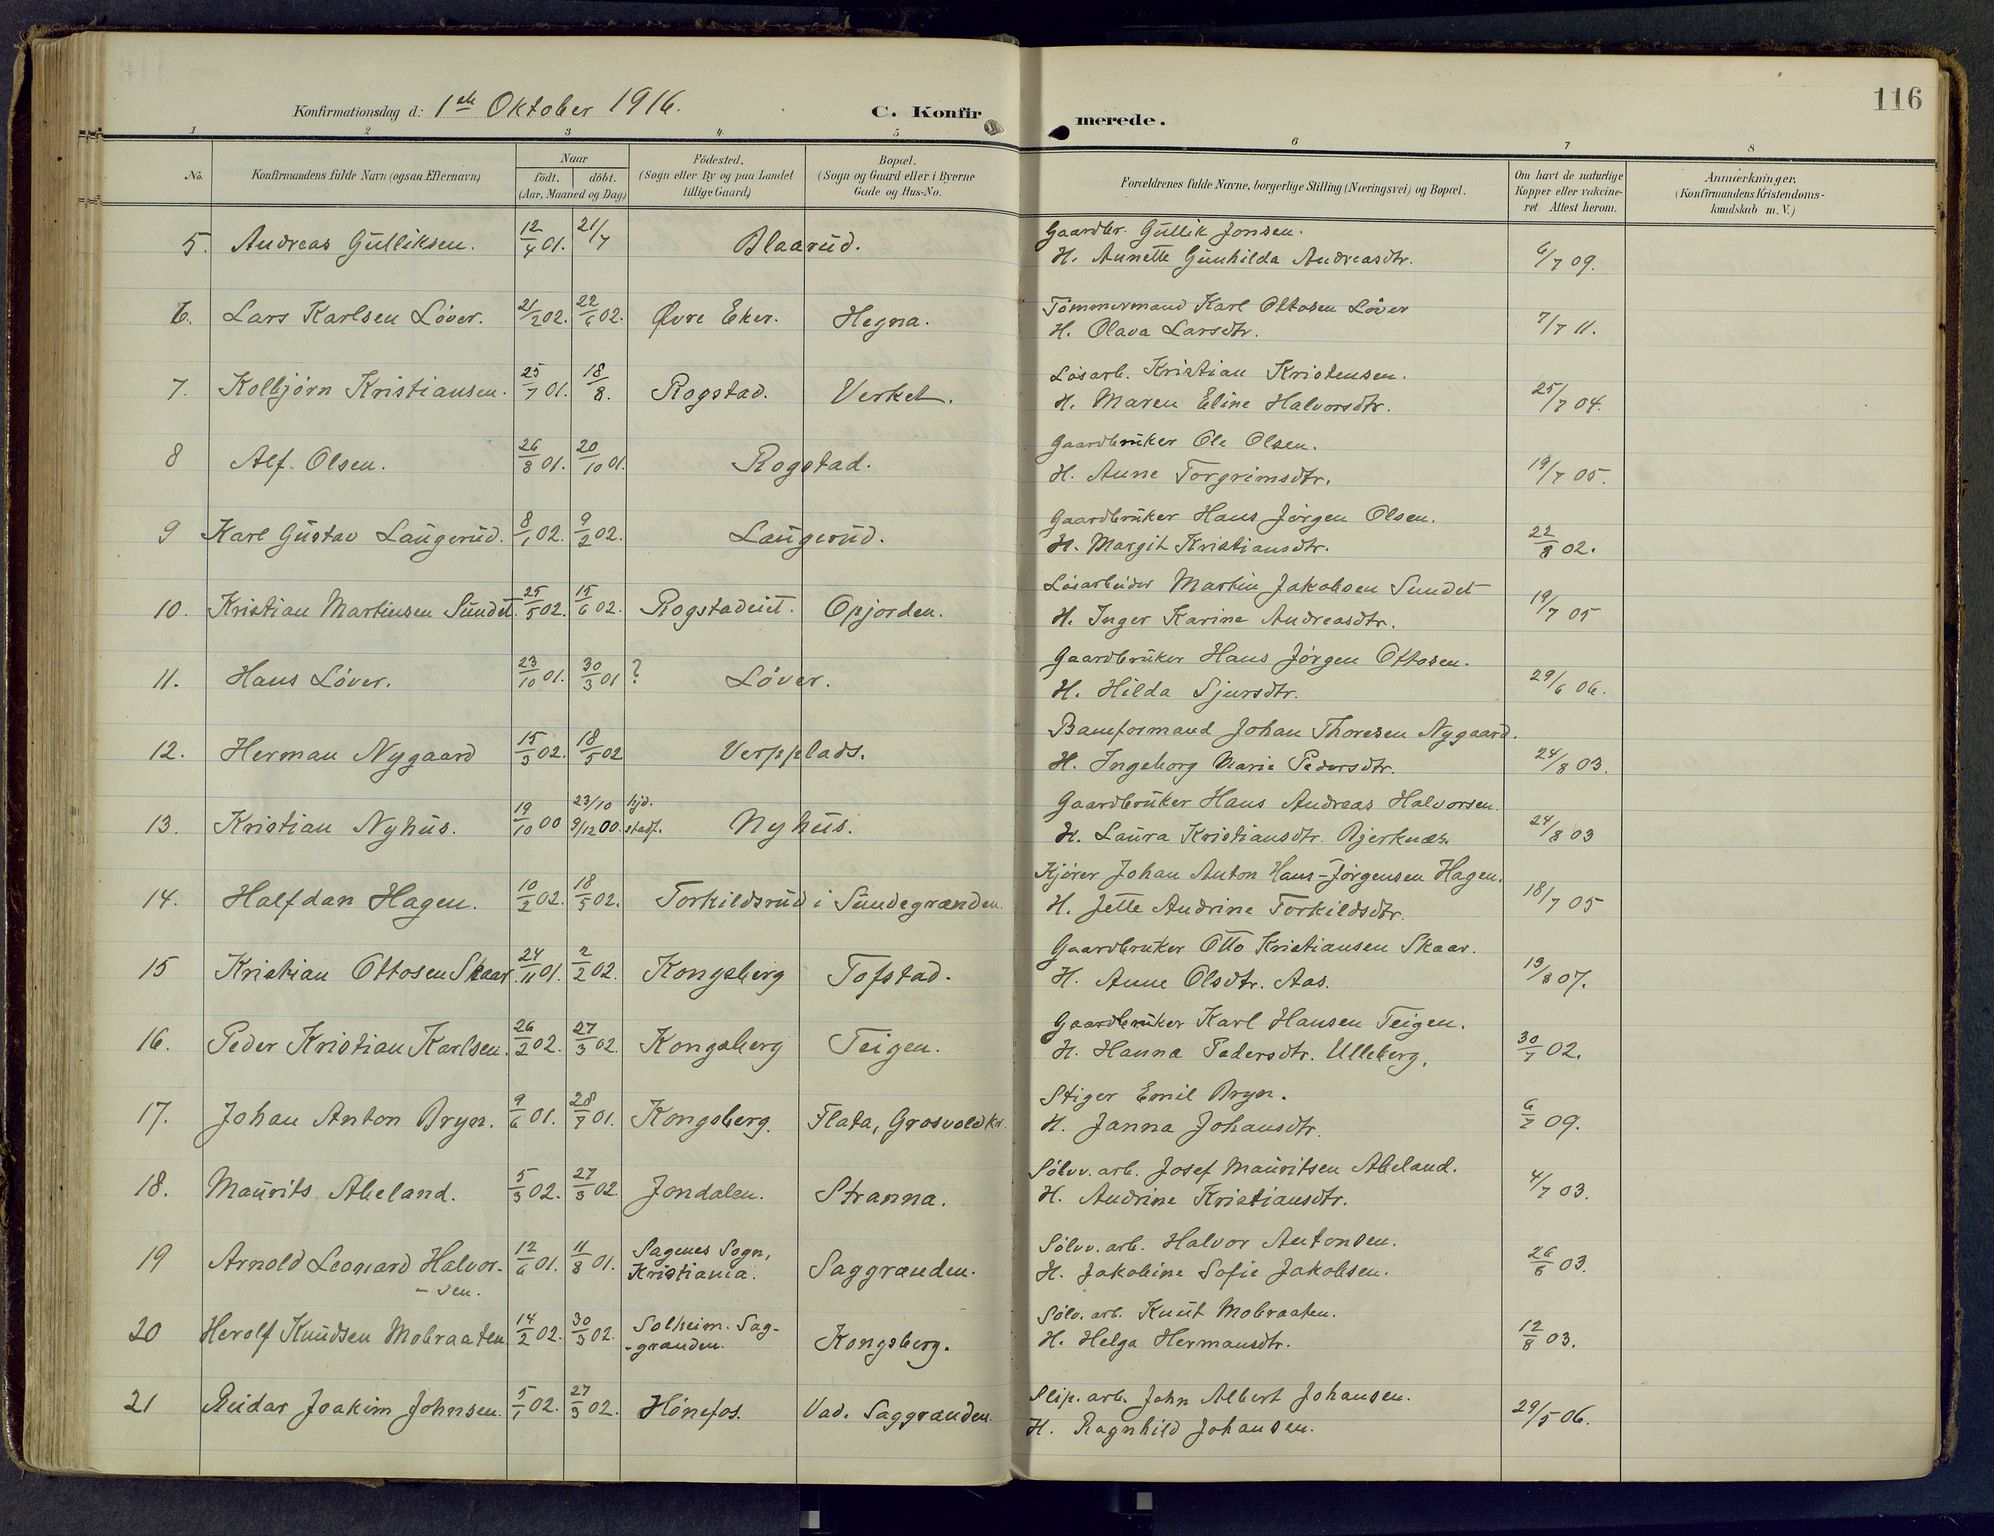 Konfirmationsdag d: 1ste Oktober 1916.
C. Konfirmerede.
116
1 2 3 4 5 6 7 8
No.
Konfirmandens fulde Navn (ogsaa Efternavn)
Naar
født. døbt.
(Aar, Maaned og Dag)
Födested.
(Sogn eller By og paa Landet
tillige Gaard)
Bopæl.
(Sogn og Gaard eller i Byerne
Gade og Hus-No.
Forældrenes fulde Navne, borgerlige Stilling (Næringsvei) og Bopæl.
Om havt de naturlige
Kopper eller vakcine-
ret. Attest herom.
Anmærkninger.
(Konfirmandens Kristendoms-
kundskab m. V.)
5. Andreas Gulliksen. 12/4 01. 21/7 Blaarud. Gaardbr. Gullik Jonsen.
H. Annette Gunhilda Andreasdtr. 6/7 09.
6. Lars Karlsen Löver. 21/2 02. 22/6 02. Øvre Eker. Hegna. Tömmermand Karl Ottosen Löver
H. Olava Larsdtr. 7/7 11.
7. Kolbjörn Kristiansen. 25/7 01. 18/8. Rogstad. Verket. Løsarb. Kristian Kristensen.
H. Maren Eline Halvorsdtr. 25/7 04.
8 Alf Olsen. 26/8 01. 20/10 01. Rogstad. Gaardbruker Ole Olsen.
H. Anne Torgrimsdtr. 19/7 05.
9 Karl Gustav Laugerud. 8/1 02. 9/2 02. Laugerud. Gaardbruker Hans Jørgen Olsen.
H. Margit Kristiansdtr. 22/8 02.
10. Kristian Martinsen Sundet. 25/5 02. 15/6 02. Rogstadeiet. Opjorden. Løsarbeider Martin Jakobsen Sundet
H. Inger Karine Andreasdtr. 19/7 05
11. Hans Löver. 23/10 01. 30/3 01 ? Löver. Gaardbruker Hans Jørgen Ottosen.
H. Hilda Sjursdtr. 29/6 06.
12. Herman Nygaard 15/3 02. 18/5 02 Verpplads. Baneformand Johan Thoresen Nygaard.
H. Ingeborg Marie Pedersdtr. 24/8 03.
13. Kristian Nyhus. 19/10 00 23/10 hjd. 9/12 00. stadf. Nyhus. Gaardbruker Hans Andreas Halvorsen.
H. Laura Kristiansdtr. Bjerknæs 24/8 03
14. Halfdan Hagen. 10/2 02. 18/5 02. Torkildsrud i Sundegrænden. Kjører Johan Anton Hans-Jørgensen Hagen.
H. Jette Andrine Torkildsdtr. 18/7 05
15 Kristian Ottosen Skaar. 24/11 01. 2/2 02. Kongsberg Tofstad. Gaardbruker Otto Kristiansen Skaar.
H. Anne Olsdtr. Aas. 13/8 07.
16. Peder Kristian Karlsen. 26/2 02. 27/3 02. Kongsberg Teigen. Gaardbruker Karl Hansen Teigen.
H. Hanna Pedersdtr. Ulleberg, 30/7 02.
17. Johan Anton Bryn. 9/6 01. 28/7 01. Kongsberg. Flata, Grosvold kr. Stiger Emil Bryn.
H. Janna Johansdtr. 6/7 09.
18. Maurits Abeland. 5/3 02. 27/3 02. Jondalen. Stranna. Sölvv. arb. Josef Mauritsen Abeland.
H. Andrine Kristiansdtr. 4/7 03.
19 Arnold Leonard Halvor-
-sen. 12/6 01. 11/8 01. Sagenes Sogn,
Kristiania. Saggrænden. Sölvv. arb. Halvor Antonsen.
H. Jakobine Sofie Jakobsen. 26/6 03.
20 Herolf Knudsen Mobraaten 14/2 02. 30/3 02. Solheim. Sag-
-grænden. Kongsberg. Sölv. arb. Knut Mobraaten.
H. Helga Hermansdtr. 12/8 03.
21 Reidar Joakim Johnsen. 5/1 02. 27/3 02. Hönefos. Vad. Saggrænden. Slip. arb. John Albert Johansen.
H. Ragnhild Johansen. 29/5 06.